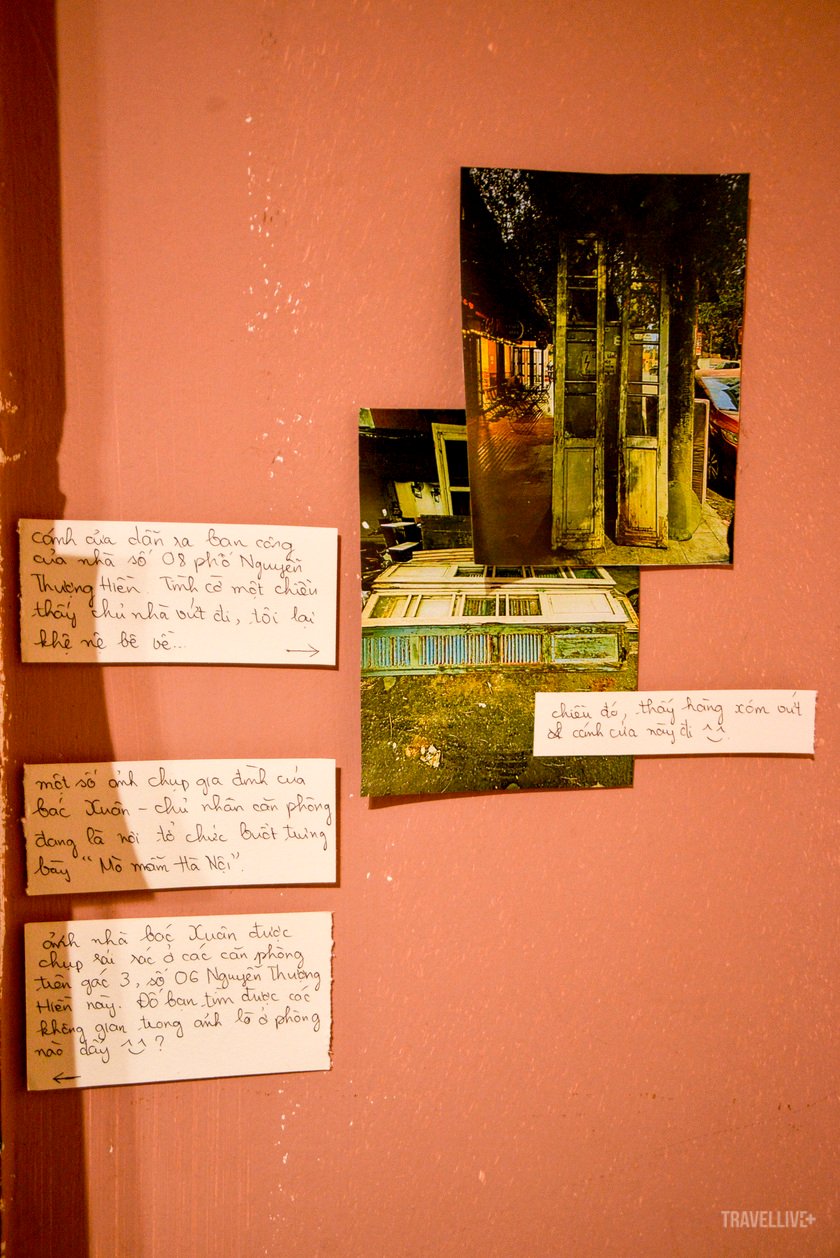 cánh cửa dẫn ra ban công
của nhà số 08 phố Nguyễn
Thượng Hiền. Tình cờ một chiều
thấy chủ nhà vứt đi, tôi lại
khệ nệ bê về...
→
chiều đó, thấy hàng xóm vứt
cánh cửa này đi ^‿^.
một số ảnh chụp gia đình của
bác Xuân - chủ nhân căn phòng
đang là nơi tổ chức buổi trưng
bày "Mò mẫm Hà Nội".
ảnh nhà bác Xuân được
chụp rải rác ở các căn phòng
trên gác 3, số 06 Nguyễn Thượng
Hiền này. Đố bạn tìm được các
không gian trong ảnh là ở phòng
nào đấy ^‿^ ?
←
TRAVELLIVE+